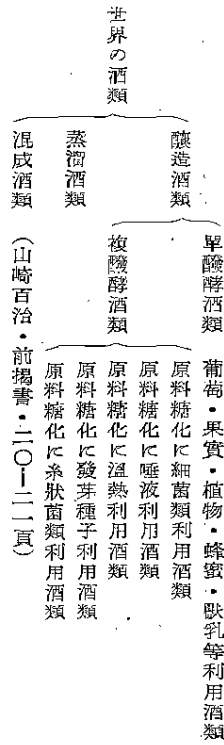 世界の酒類
釀造酒類
單醱酵酒類
葡萄・果實・植物・蜂蜜・獸乳等利用酒類
複醱酵酒類
原料糖化に細菌類利用酒類
原料糖化に唾液利用酒類
原料糖化に溫熱利用酒類
原料糖化に發芽種子利用酒類
原料糖化に糸狀菌類利用酒類
蒸溜酒類
混成酒類
(山崎百治・前揭書・二〇―二一頁)